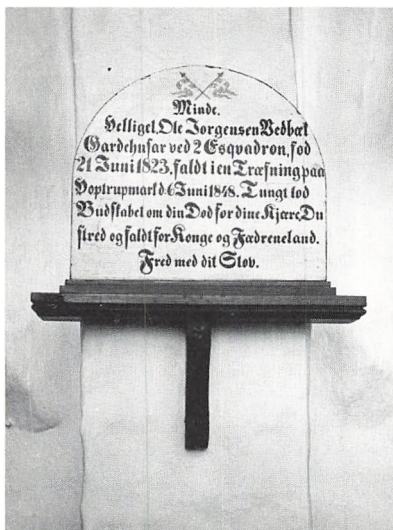 Minde.
Helliget, Ole Jorgensen Vedbæk
Gardehusar ved 2 Esqvadron, fød
21 Juni 1823, faldt i en Træfning paa
Hoptrupmark d. 6 Juni 1848. Tungt lød
Budskabet om din Død for dine Kjære, Du
stred og faldt for Konge og Fædreneland.
Fred med dit Støv.